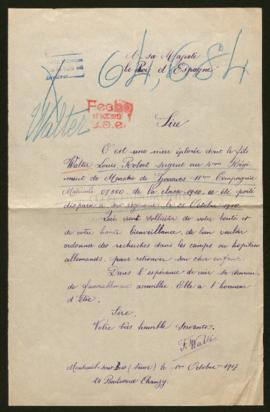 64,684
Walter
A sa Majesté
le Roi d'Espagne
Fecha
Sire
C'est une mère éplorée dont le fils
Walter Louis, Robert sergent au Régi
ment de Marche de Zouaves 11me Compagnie
Matricule de la classe 1910 a été porté
disparu à le 25 Octobre
Qui vient solliciter de votre bonté et
de votre haute bienveillance, de bien vouloir
ordonner des recherches dans les camps ou hopitaux
allemands, pour retrouver son cher enfant.
Dans l'espérance de voir sa demande
favorablement accueillie Elle a l'honneur
d'Etre,
Sire,
Votre très humble servante,
Montreuil-sous-Bois (Seine) le 1er Octobre 1917
Boulevard Chanzy